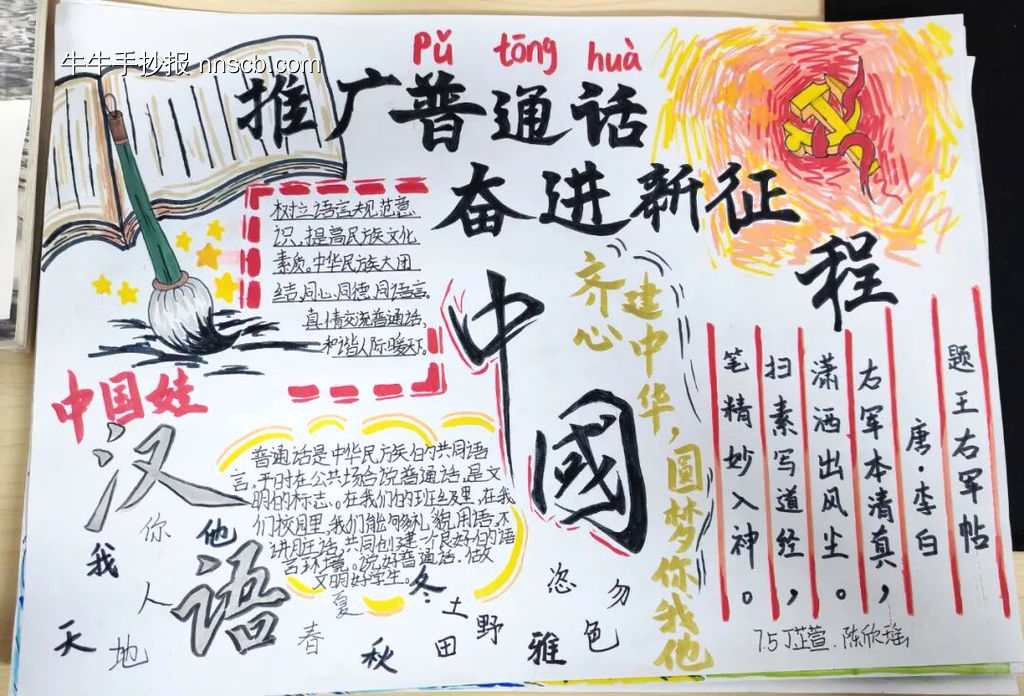 牛牛手抄报 nnscb.com
pǔ tōng huà
推广普通话
奋进新征程
树立语言规范意
识,提高民族文化
素质。中华民族大团
结,同心,同德,同语言。
真情交流普通话,
和谐人际暖天下。
中國
齐心
建中华,圆梦你我他
题王右军帖
唐·李白
右军本清真,
潇洒出风尘。
扫素写道经,
笔精妙入神。
中国娃
汉语
普通话是中华民族的共同语
言,平时在公共场合说普通话,是文
明的标志。在我们的班级里,在我
们校园里,我们能够礼貌用语,不
讲脏话,共同创建一个良好的语
言环境。说好普通话,做
文明好学生。
我 你 他
天 地 人
春 夏 秋 冬
土 田 野
雅 色 恣 勿
7.5丁芷萱.陈欣瑶